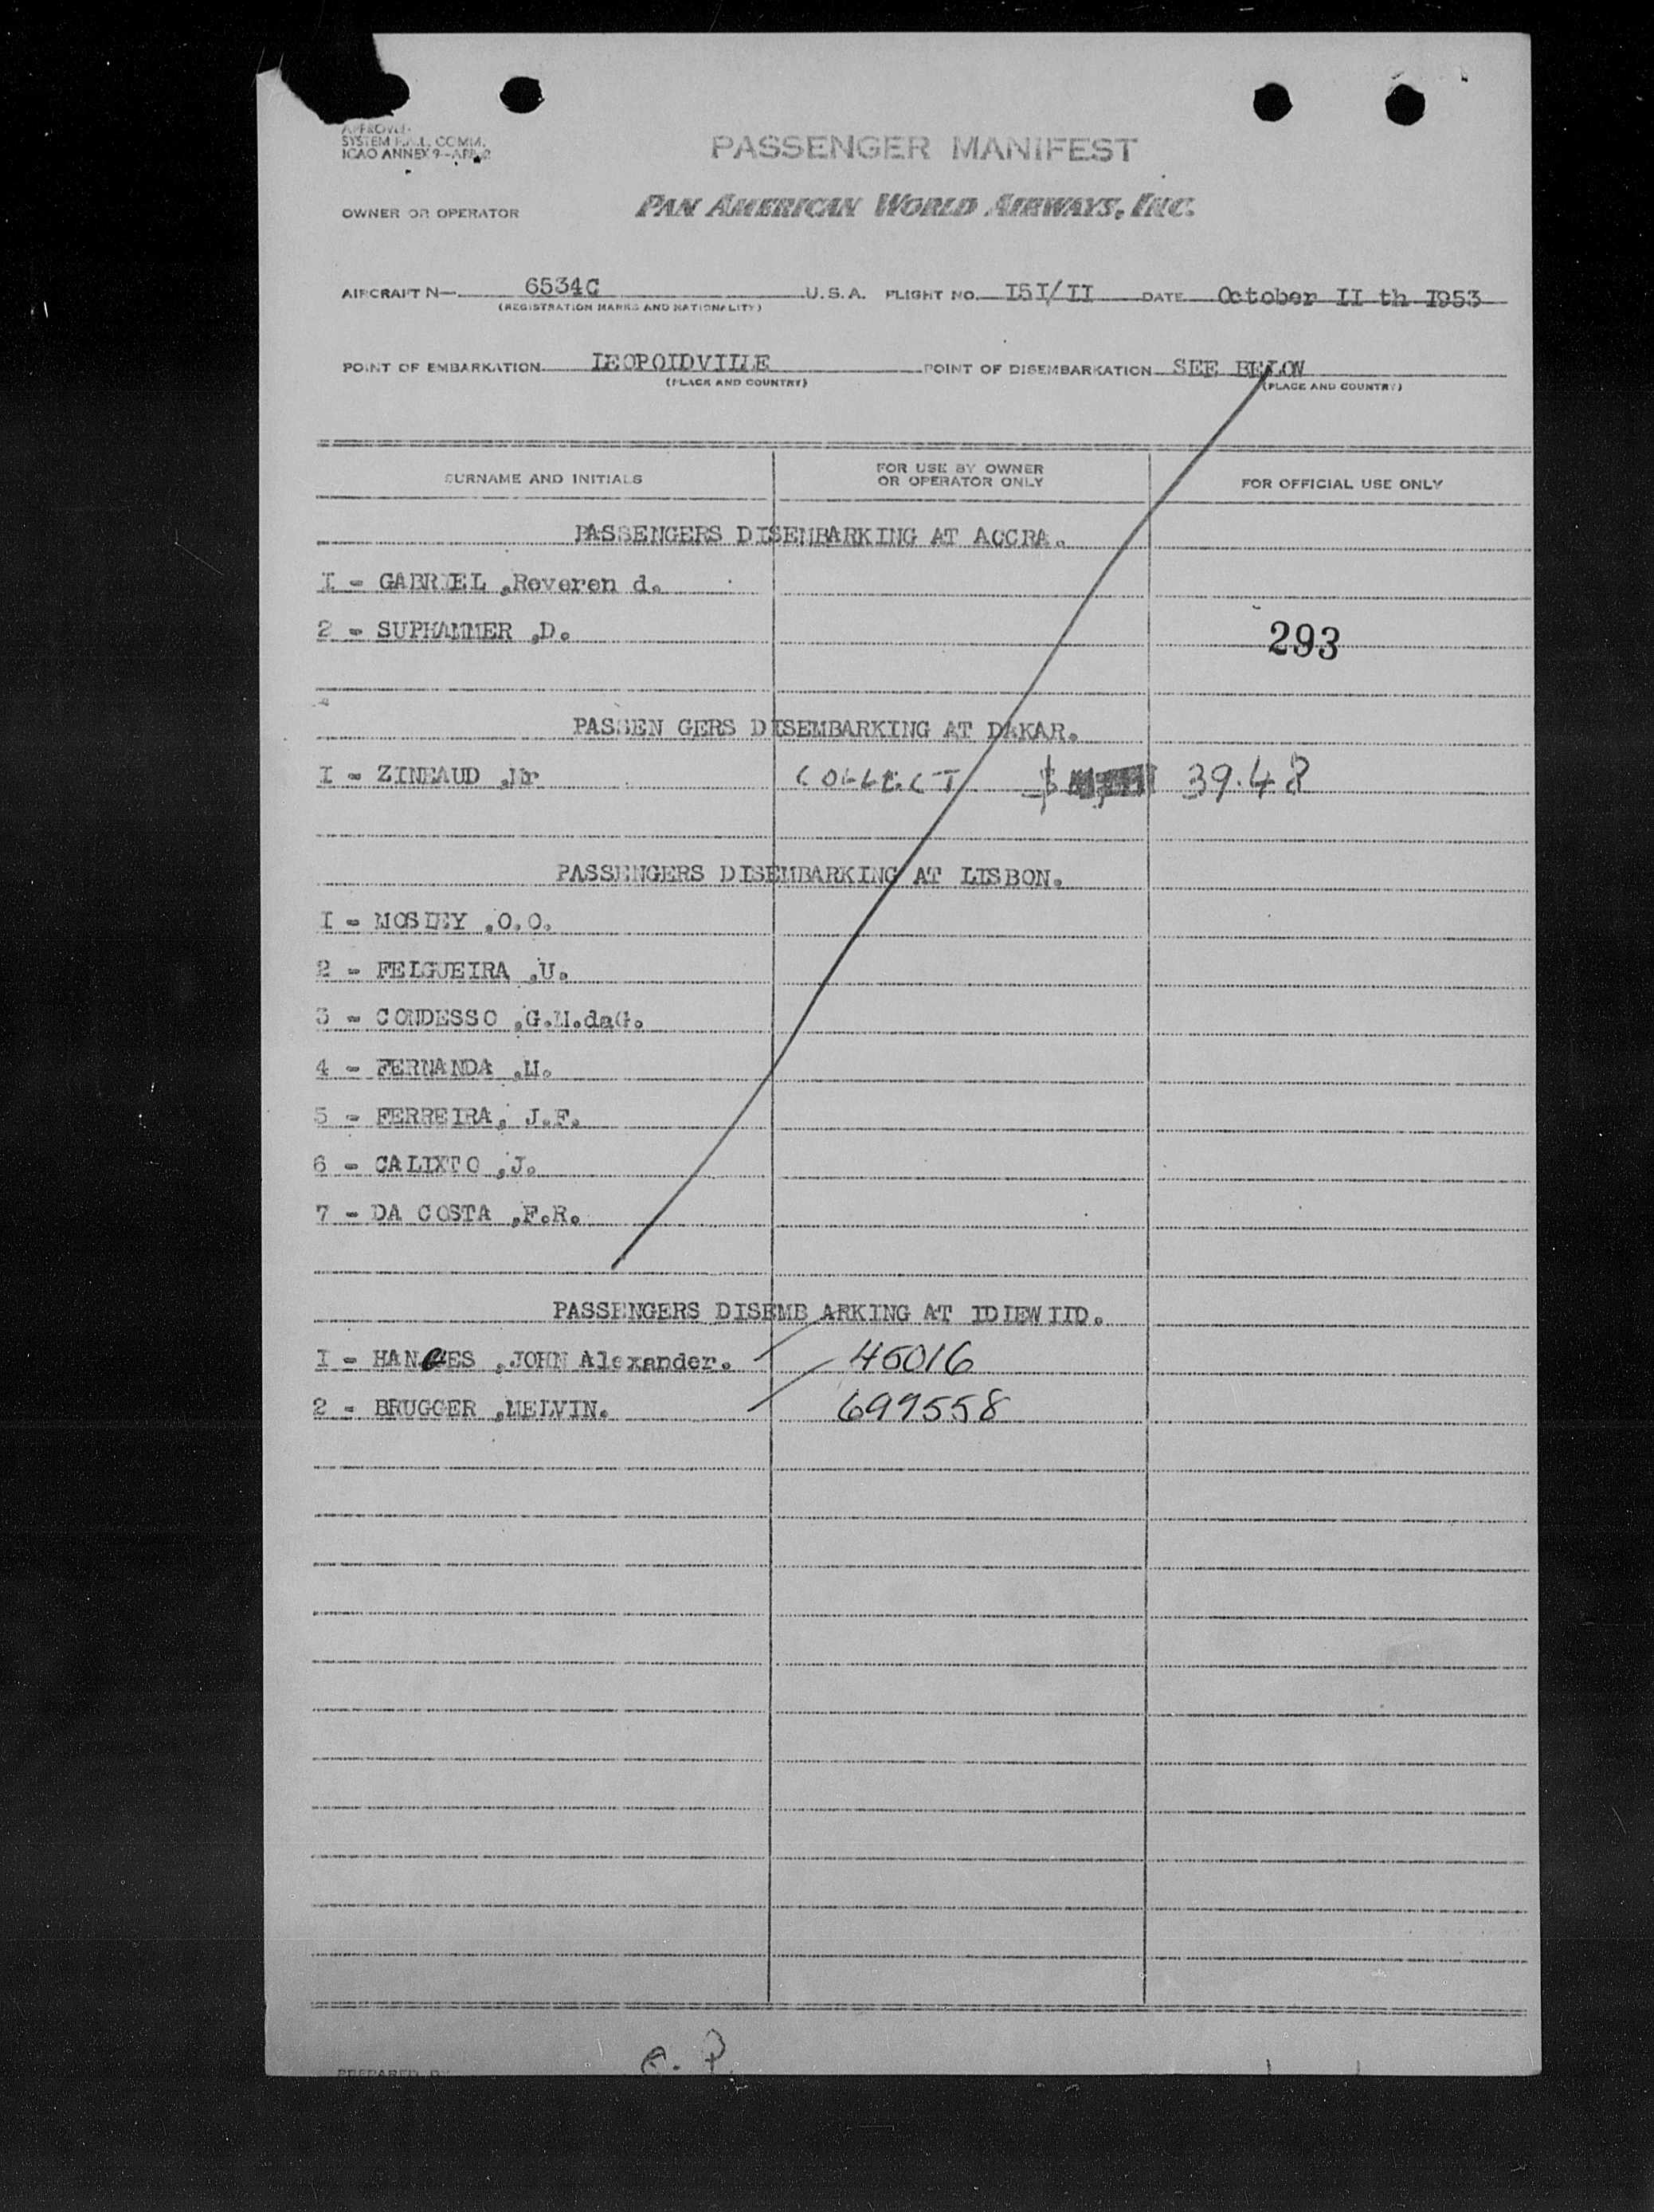 SYSTEM
ICAO ANNEX 9
PASSENGER MANIFEST
OWNER OR OPERATOR PAN AMERICAN WORLD AIRWAYS, INC.
AIRCRAFT N— 6534C U.S.A. FLIGHT NO. I5I/II DATE October II th I953
(REGISTRATION MARKS AND NATIONALITY)
POINT OF EMBARKATION LEOPOLDVILLE POINT OF DISEMBARKATION SEE BELOW
(PLACE AND COUNTRY) (PLACE AND COUNTRY)
SURNAME AND INITIALS FOR USE BY OWNER OR OPERATOR ONLY FOR OFFICIAL USE ONLY
PASSENGERS DISEMBARKING AT ACCRA.
I - GABRIEL ,Reveren d.
2 - SUPHAMMER ,D.
293
PASSEN GERS DISEMBARKING AT DAKAR.
I - ZINBAUD ,Mr COLLECT $ 39.48
PASSENGERS DISEMBARKING AT LISBON.
I - MOSLEY ,O.O.
2 - FELGUEIRA ,U.
3 - CONDESSO ,G.M.daG.
4 - FERNANDA ,M.
5 - FERREIRA, J.F.
6 - CALIXTO ,J.
7 - DA COSTA ,F.R.
PASSENGERS DISEMB ARKING AT IDLEWILD.
I - ,JOHN Alexander. 45016
2 - BRUGGER ,MELVIN. 699558
PREPARED BY